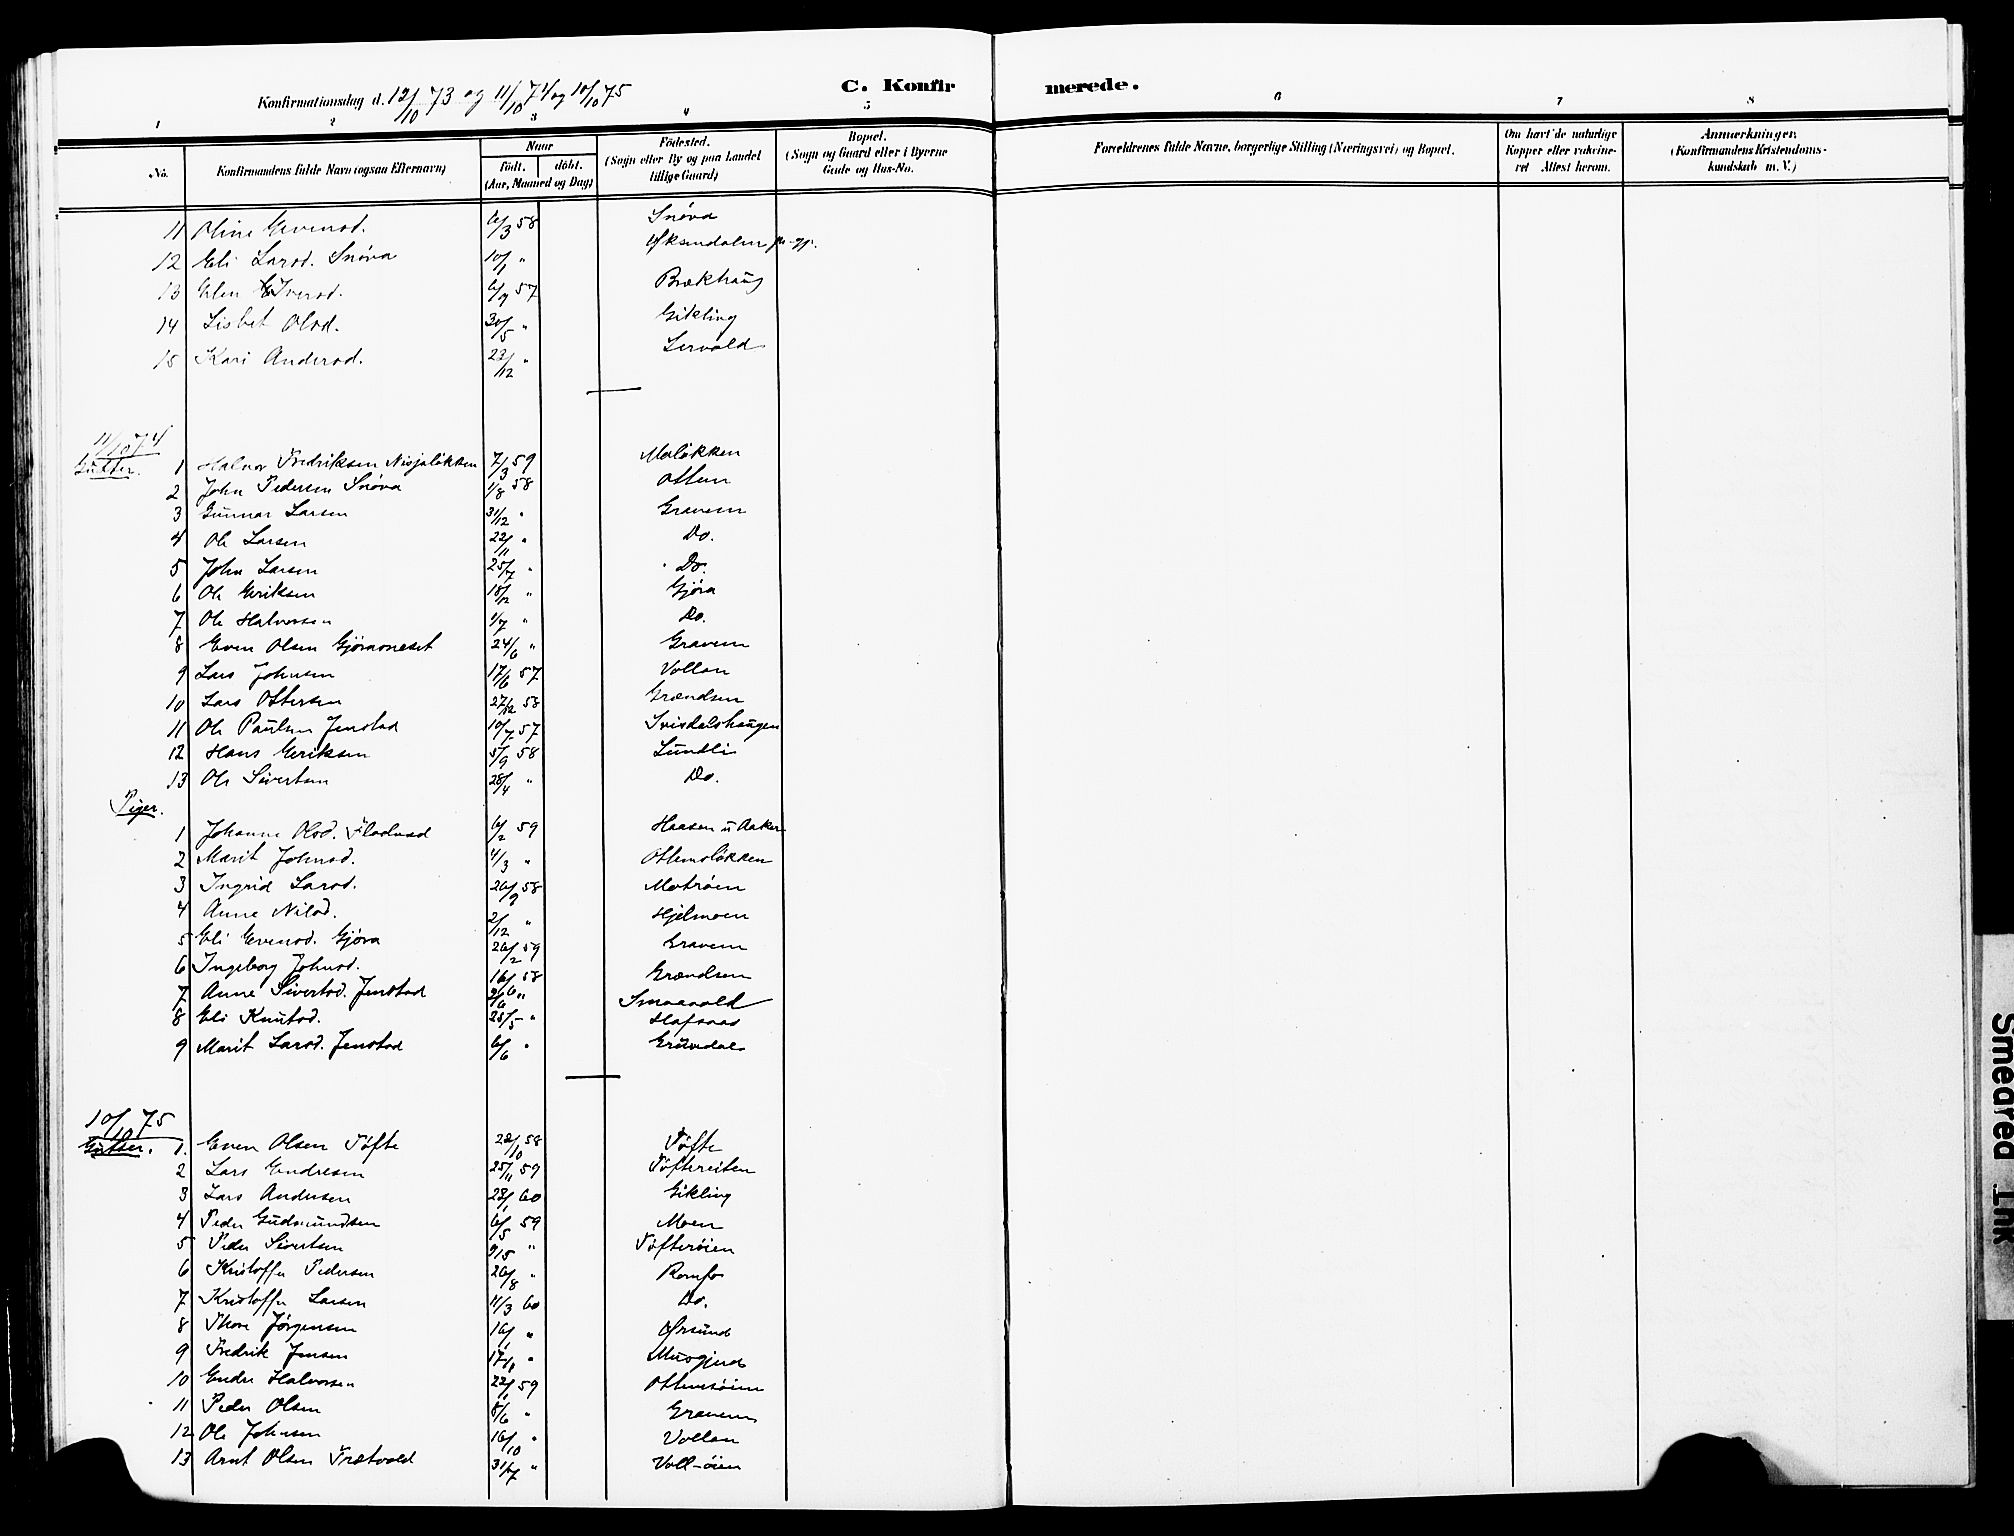 C. Konfirmerede.
Konfirmationsdag d. 12/10 73 og 11/10 74 og 10/10 75
1 2 3 4 5 6 7 8
No. Konfirmandens fulde Navn (ogsaa Efternavn) Naar födt. döbt. (Aar, Maaned og Dag) Födested. (Sogn eller By og paa Landet tillige Gaard) Bopæl. (Sogn og Gaard eller i Byerne Gade og Hus-No. Forældrenes fulde Navne, borgerlige Stilling (Næringsvei) og Bopæl. Om havt de naturlige Kopper eller vaksineret Attest herom. Anmærkninger. (Konfirmandens Kristendomskundskab m. V.)
11 Oline Evensd. 6/3 58 Snøva
12 Eli Larsd. Snøva 10/1 " Øksendalen
13 Elen Iversd. 6/9 57 Brækhaug
14 Lisbet Olsd. 30/5 " Gikling
15 Kari Andersd. 22/12 " Lervold
11/10 74
Gutter. 1 Halvor Fredriksen Nisjaløkken 7/3 59 Moløkken
2 John Pedersen Snøva 1/8 58 Ottem
3 Gunnar Larsen 31/12 " Gravem
4 Ole Larsen 22/11 " Do.
5 John Larsen 25/7 " Do.
6 Ole Eriksen 18/12 " Gjøra
7 Ole Halvorsen 1/7 " Do.
8 Even Olsen Gjøraoneset 24/6 " Gravem
9 Lars Johnsen 17/6 57 Vollan
10 Lars Ottersen 27/12 58 Grændsen
11 Ole Paulsen Jenstad 10/7 57 Svisdalshaugen
12 Hans Eriksen 5/9 58 Lundli
13 Ole Sivertsen 28/4 " Do.
Piger.
1 Johanne Olsd. Flatvad 6/2 59 Haasen u Aaker
2 Marit Johnsd. 4/3 " Ottemsløkken
3 Ingrid Larsd. 26/9 58 Motrøen
4 Anne Nilsd. 2/12 " Hjelmoen
5 Eli Evensd. Gjøra 26/2 59 Gravem
6 Ingeborg Johnsd. 16/6 58 Grændsen
7 Anne Sivertsd. Jenstad 2/6 " Smaavold
8 Eli Knutsd. 25/5 " Hafsaas
9 Marit Larsd. Jenstad 6/6 " Grøvdal
10/10 75
Gutter. 1. Even Olsen Tøfte 22/10 58 Tøfte
2 Lars Endresen 25/11 59 Tøftereiten
3 Lars Andersen 28/1 60 Gikling
4 Peder Gudmundsen 6/5 59 Moen
5 Peder Sivertsen 9/5 " Tøfterøien
6 Kristoffer Pedersen 26/8 " Romfo
7 Kristoffer Larsen 11/3 60 Do.
8 Thore Jørgensen 16/1 " Ørsund
9 Fredrik Jensen 17/1 " Musgjerd
10 Endre Halvorsen 22/1 59 Ottemsøien
11 Peder Olsen 8/6 " Gravem
12 Ole Johnsen 16/10 " Vollan
13 Arnt Olsen Frætvold 31/7 " Voll-øien
Smeared Ink